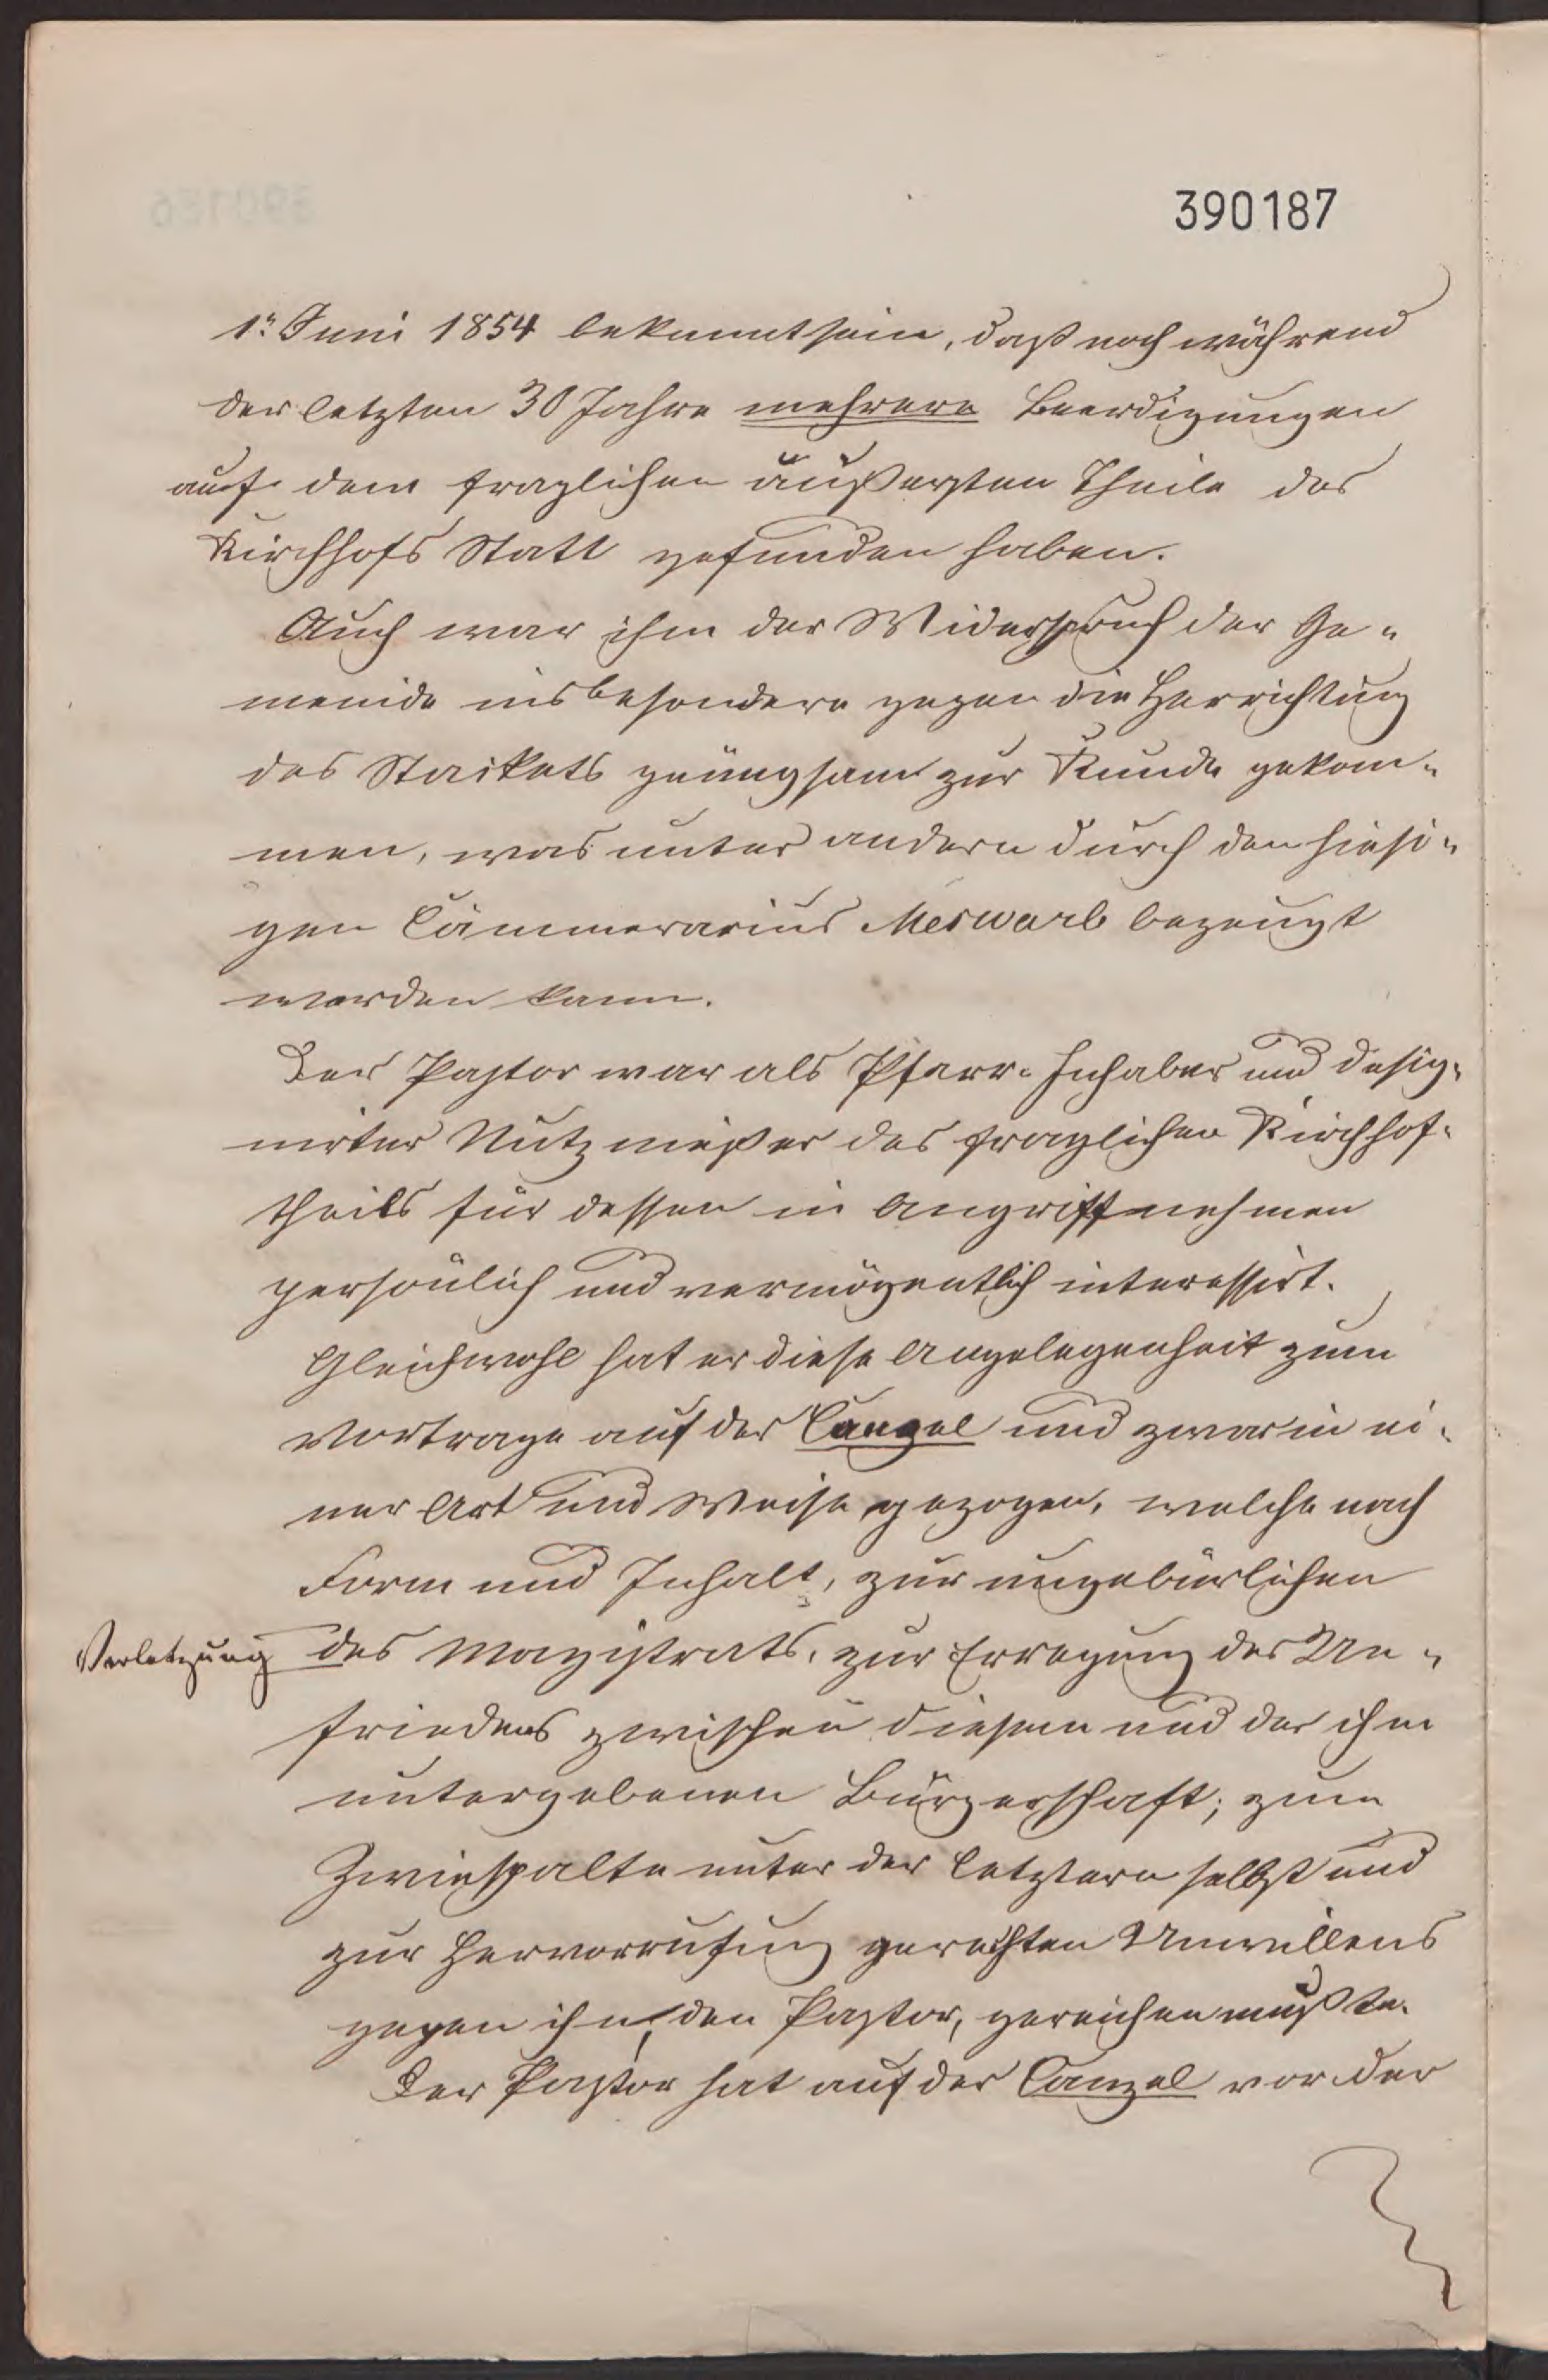 390187
1n Juni 1854 bekannt sein, daß noch während
der letzten 30 Jahre mehrere Beerdigungen
auf dem fraglichen äußersten Theile des
Kirchhofs Statt gefunden haben.
Auch war ihm der Widerspruch der Ge-
meinde insbesondere gegen die Herrichtung
des Stackets genugsam zur Kunde gekom-
men, was unter andern durch den hiesi-
gen Cämmerarius Meswarb bezeugt
werden kann.
Der Pastor war als Pfarr-Inhaber und desig-
nirter Nutznießer des fraglichen Kirchhof-
theils für dessen in Angriffnehmen
persönlich und vermögentlich interessirt.
Gleichwohl hat er diese Angelegenheit zum
Vortrage auf der Canzel und zwar in ei-
ner Art und Weise gezogen, welche nach
Form und Inhalt, zur ungebürlichen
Verletzung des Magistrats, zur Erregung des Un-
friedens zwischen diesem und der ihm
untergebenen Bürgerschaft; zum
Zwiespalte unter der letztern selbst und
zur Hervorrufung gerechten Unwillens
gegen ihn, den Pastor, gereichen mußte.
Der Pastor hat auf der Canzel vor der